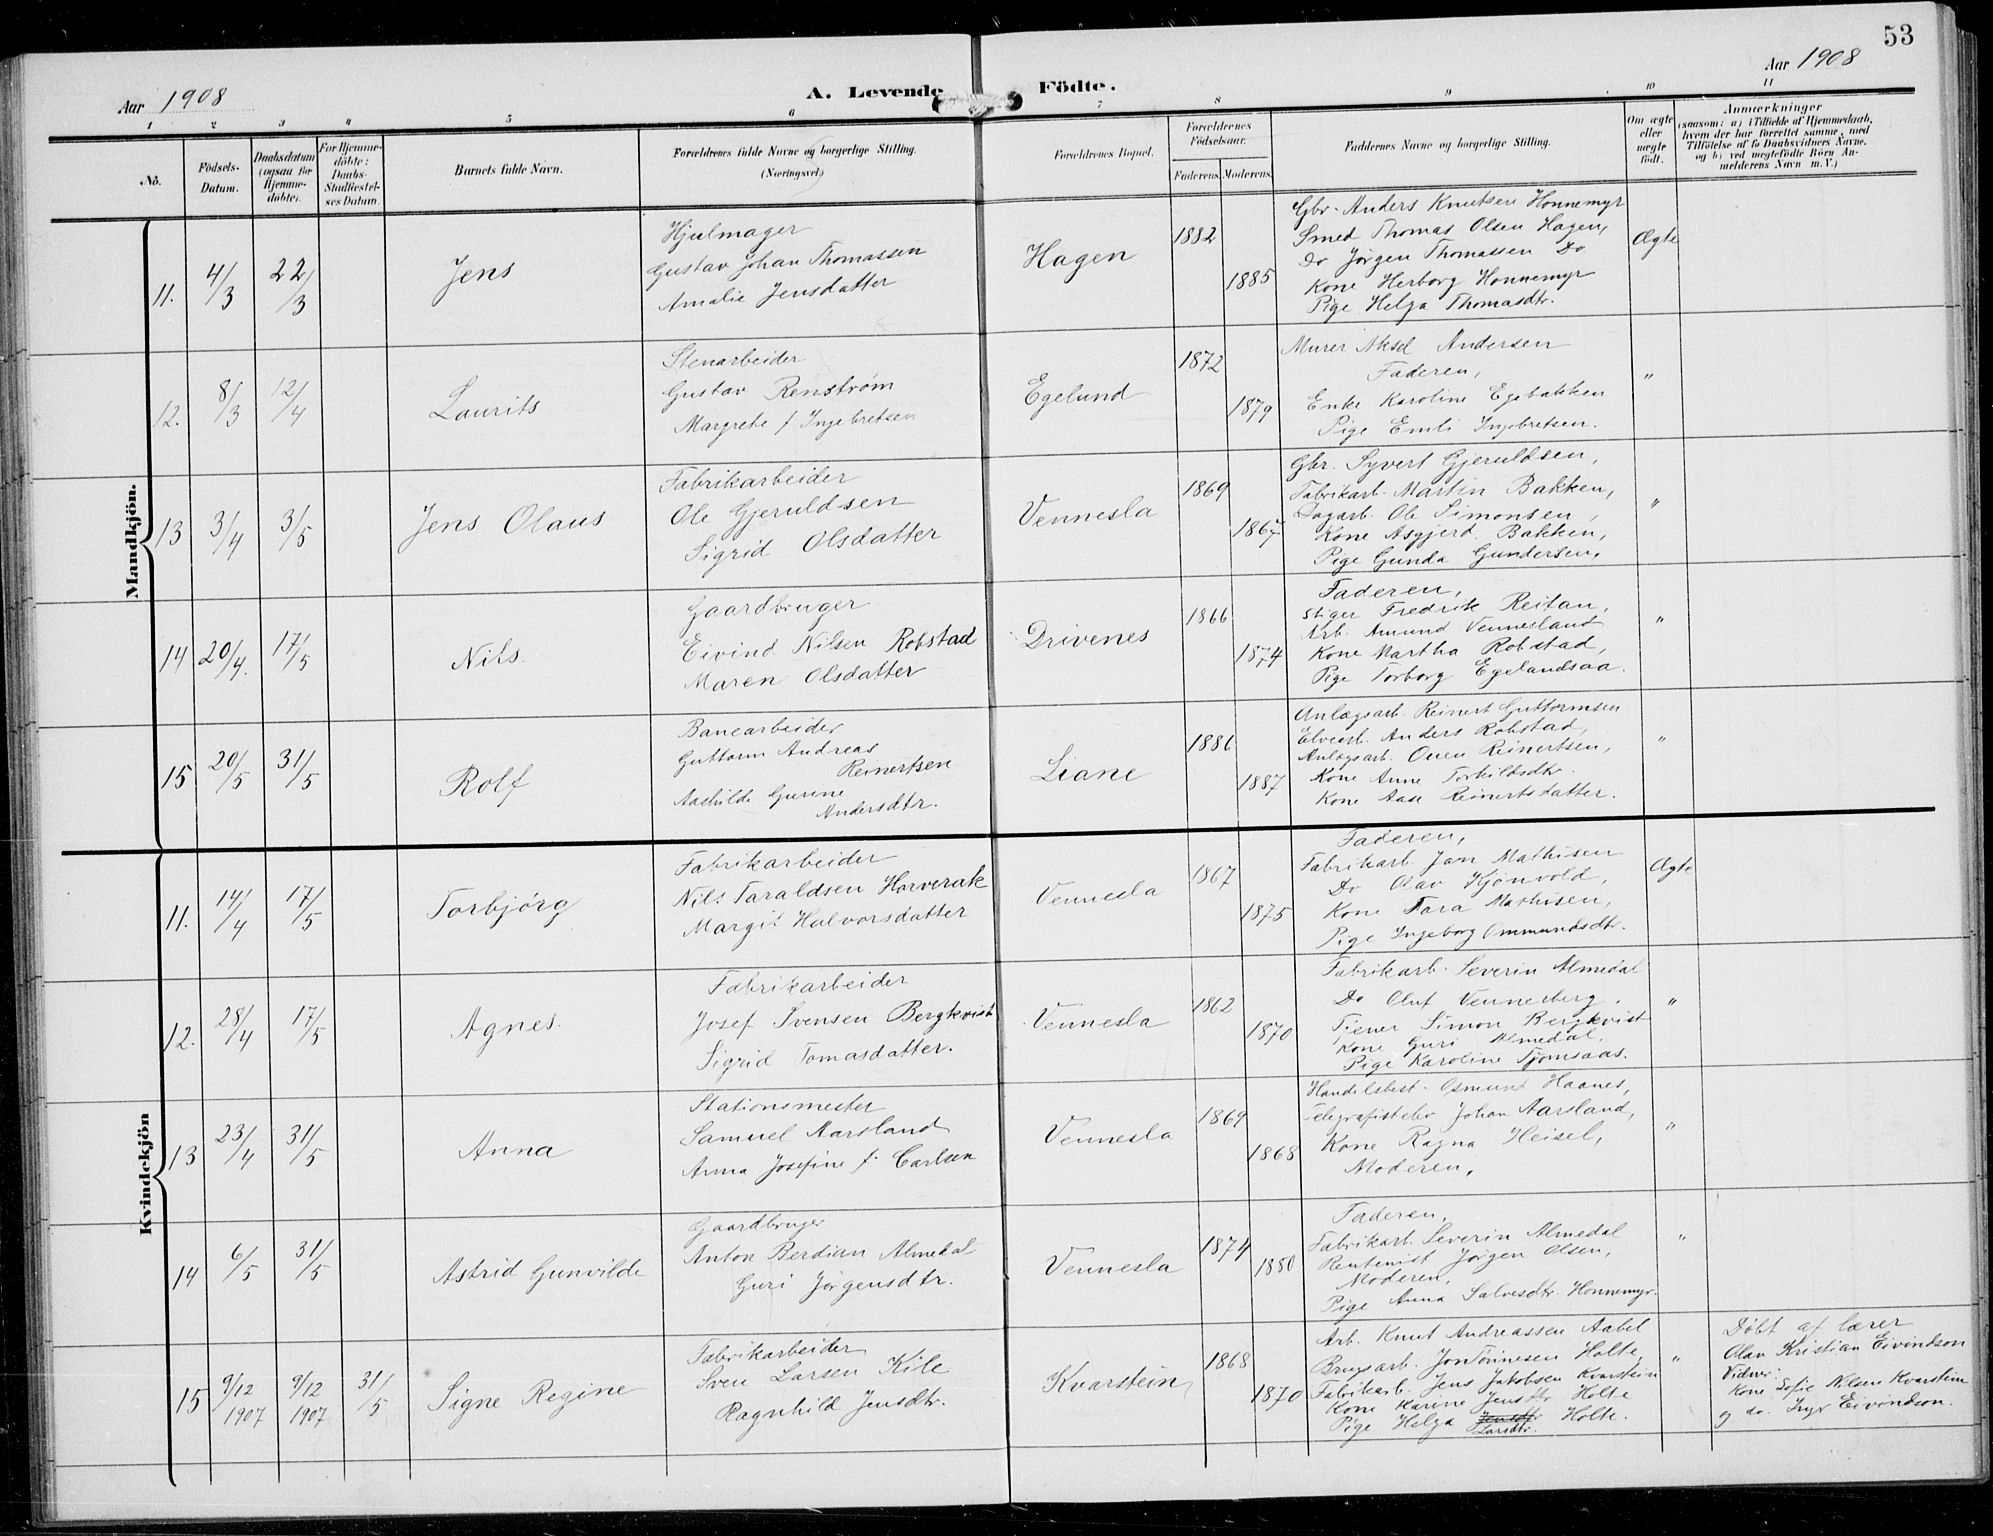 53
Aar 1908
A. Levende Födte.
Aar 1908
1 2 3 4 5 6 7 8 9 10 11
No.
Födsels-Datum.
Daabsdatum (ogsaa for Hjemme-döbte).
For Hjemme-döbte: Daabs-Stadfæstel-ses Datum.
Barnets fulde Navn.
Forældrenes fulde Navne og borgerlige Stilling.
(Næringsvei)
Forældrenes Bopæl.
Forældrenes Födselsaar.
Faderens. Moderens.
Faddernes Navne og borgerlige Stilling.
Om ægte eller uægte födt.
Anmærkninger
(saasom: a) i Tilfælde af Hjemmedaab, hvem der har forrettet samme, med Tilföielse af to Daabsvidners Navne, og b) ved uægtefödte Börn An-melderens Navn m. V.)
Mandkjön.
11. 4/3 22/3 Jens
Hjulmager
Gustav Johan Thomassen
Amalie Jensdatter
Hagen 1882 1885
Gbr. Anders Knutsen Honnemyr
Smed Thomas Olsen Hagen,
Do Jørgen Thomassen Do
Kone Herborg Honnemyr
Pige Helga Thomasdtr.
Ægte
12. 8/3 12/4 Laurits
Stenarbeider
Gustav Renstrøm
Margrete f Ingebretsen
Egelund 1872 1879
Murer Aksel Andersen
Faderen,
Enke Karoline Egebakken
Pige Emli Ingebretsen.
"
13 3/4 3/5 Jens Olaus
Fabrikarbeider
Ole Gjeruldsen
Sigrid Olsdatter
Vennesla 1869 1867
Gbr. Syvert Gjeruldsen,
Fabrikarb. Martin Bakken,
Dagarb. Ole Simonsen,
Kone Asgjerd Bakken,
Pige Gunda Gundersen.
"
14 20/4. 17/5 Nils.
Gaardbruger
Eivind Nilsen Robstad
Maren Olsdatter
Drivenes 1866 1874
Faderen,
Stiger Fredrik Reitan,
Arb. Amund Vennesland
Kone Martha Robstad,
Pige Torborg Egelandsaa.
"
15 20/5 31/5 Rolf
Banearbeider
Guttorm Andreas
Reinertsen
Aashilde Gurine
Andersdtr.
Liane 1886 1887
Anlægsarb. Reinert Guttormsen
Elvearb. Anders Robstad,
Anlægsarb. Omen Reinertsen,
Kone Anne Torkildsdtr.
Kone Aase Reinertsdatter.
"
Kvindekjön
11. 14/4 17/5 Torbjørg
Fabrikarbeider
Nils Taraldsen Horverak
Margit Halvorsdatter
Vennesla 1867 1875
Faderen,
Fabrikarb. Jan Mathisen
Do Olav Kjønvold,
Kone Tara Mathisen,
Pige Ingeborg Ommundsdtr.
Ægte
12. 28/4 17/5 Agnes.
Fabrikarbeider
Josef Svensen Bergkvist
Sigrid Tomasdatter.
Vennesla 1862 1870
Fabrikarb. Severin Almedal
Do Oluf Vennerberg.
Tiener Simon Bergkvist
Kone Guri Almedal,
Pige Karoline Tjomsaas.
"
13 23/4 31/5 Anna
Stationsmester
Samuel Aarsland
Anna Josefine f. Carlsen
Vennesla 1869 1868
Handelsbest. Osmund Haanes,
Telegrafistelev Johan Aarsland,
Kone Ragna Heisel,
Moderen,
"
14 6/5 31/5 Astrid Gunvilde
Gaardbruger
Anton Berdian Almedal
Guri Jørgensdtr.
Vennesla 1874 1880
Faderen,
Fabrikarb. Severin Almedal
Rentenist Jørgen Olsen,
Moderen,
Pige Anna Salvesdtr. Honnemyr.
"
15 9/12 1907 9/12 1907 31/5 Signe Regine
Fabrikarbeider
Sven Larsen Kile
Ragnhild Jensdtr.
Kvarstein 1868 1870
Arb. Knut Andreassen Aabel
Brugsarb. Jon Tønnesen Holte,
Fabrikarb. Jens Jakobsen Kvarstein
Kone Karene Jensdtr Holte
Pige Helga Jensdtr Larsdtr. Holte.
"
Döbt af lærer
Olav Kristian Eivindson
Vidner
Kone Sofie Nilsen Kvarstein
og do. Inger Eivindson.